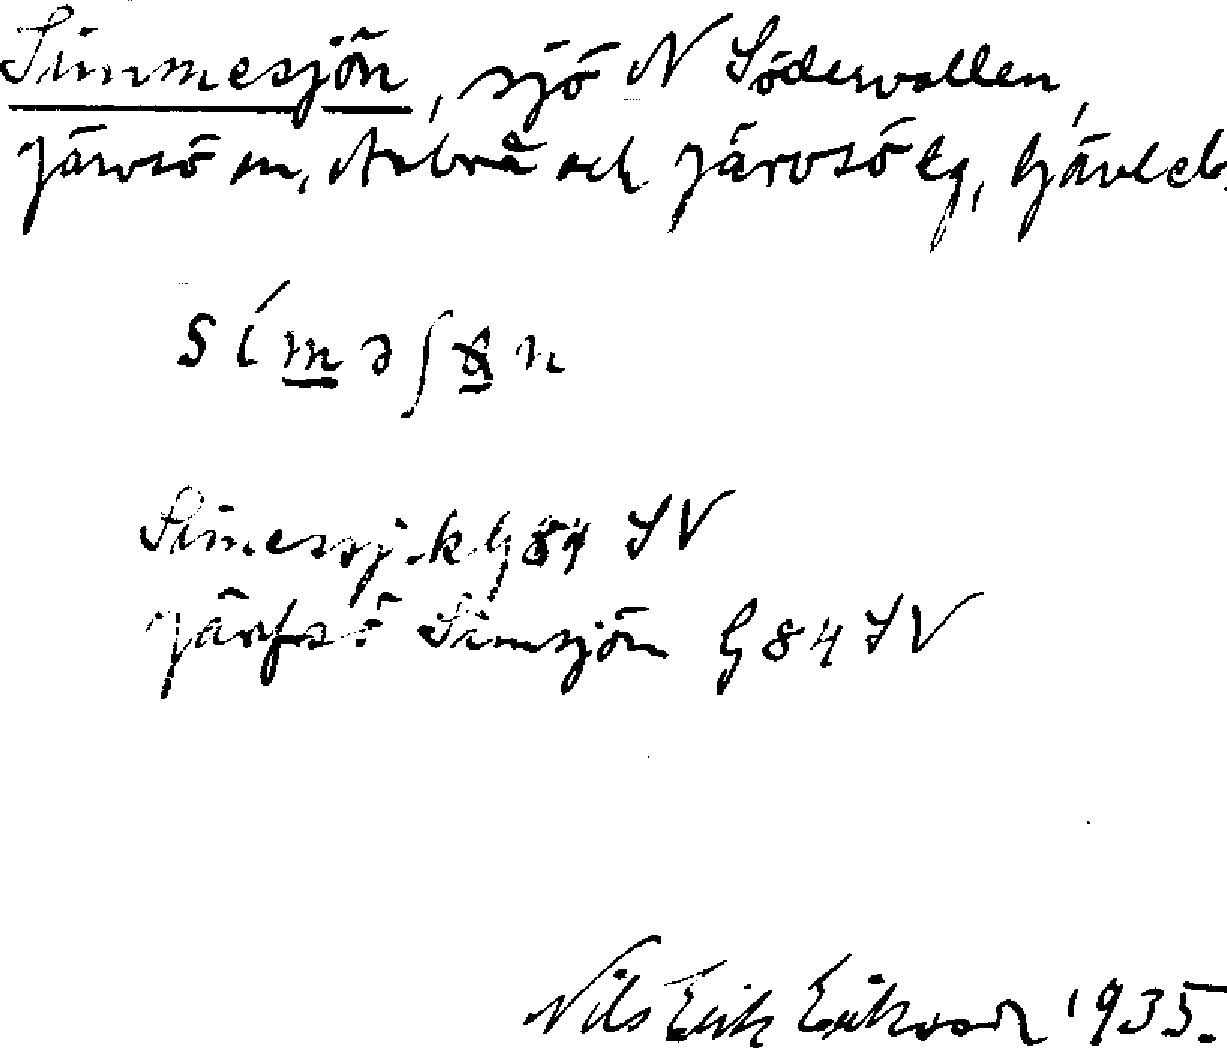 Simmesjön, sjö N Södervallen,
Järvsö sn, Arbrå och Järvsö tg, Gävleb.
síməʃɵn
Simessj. k G 84 SV
Järfsö Simsjön G 84 SV
Nils Erik Eriksson 1935.